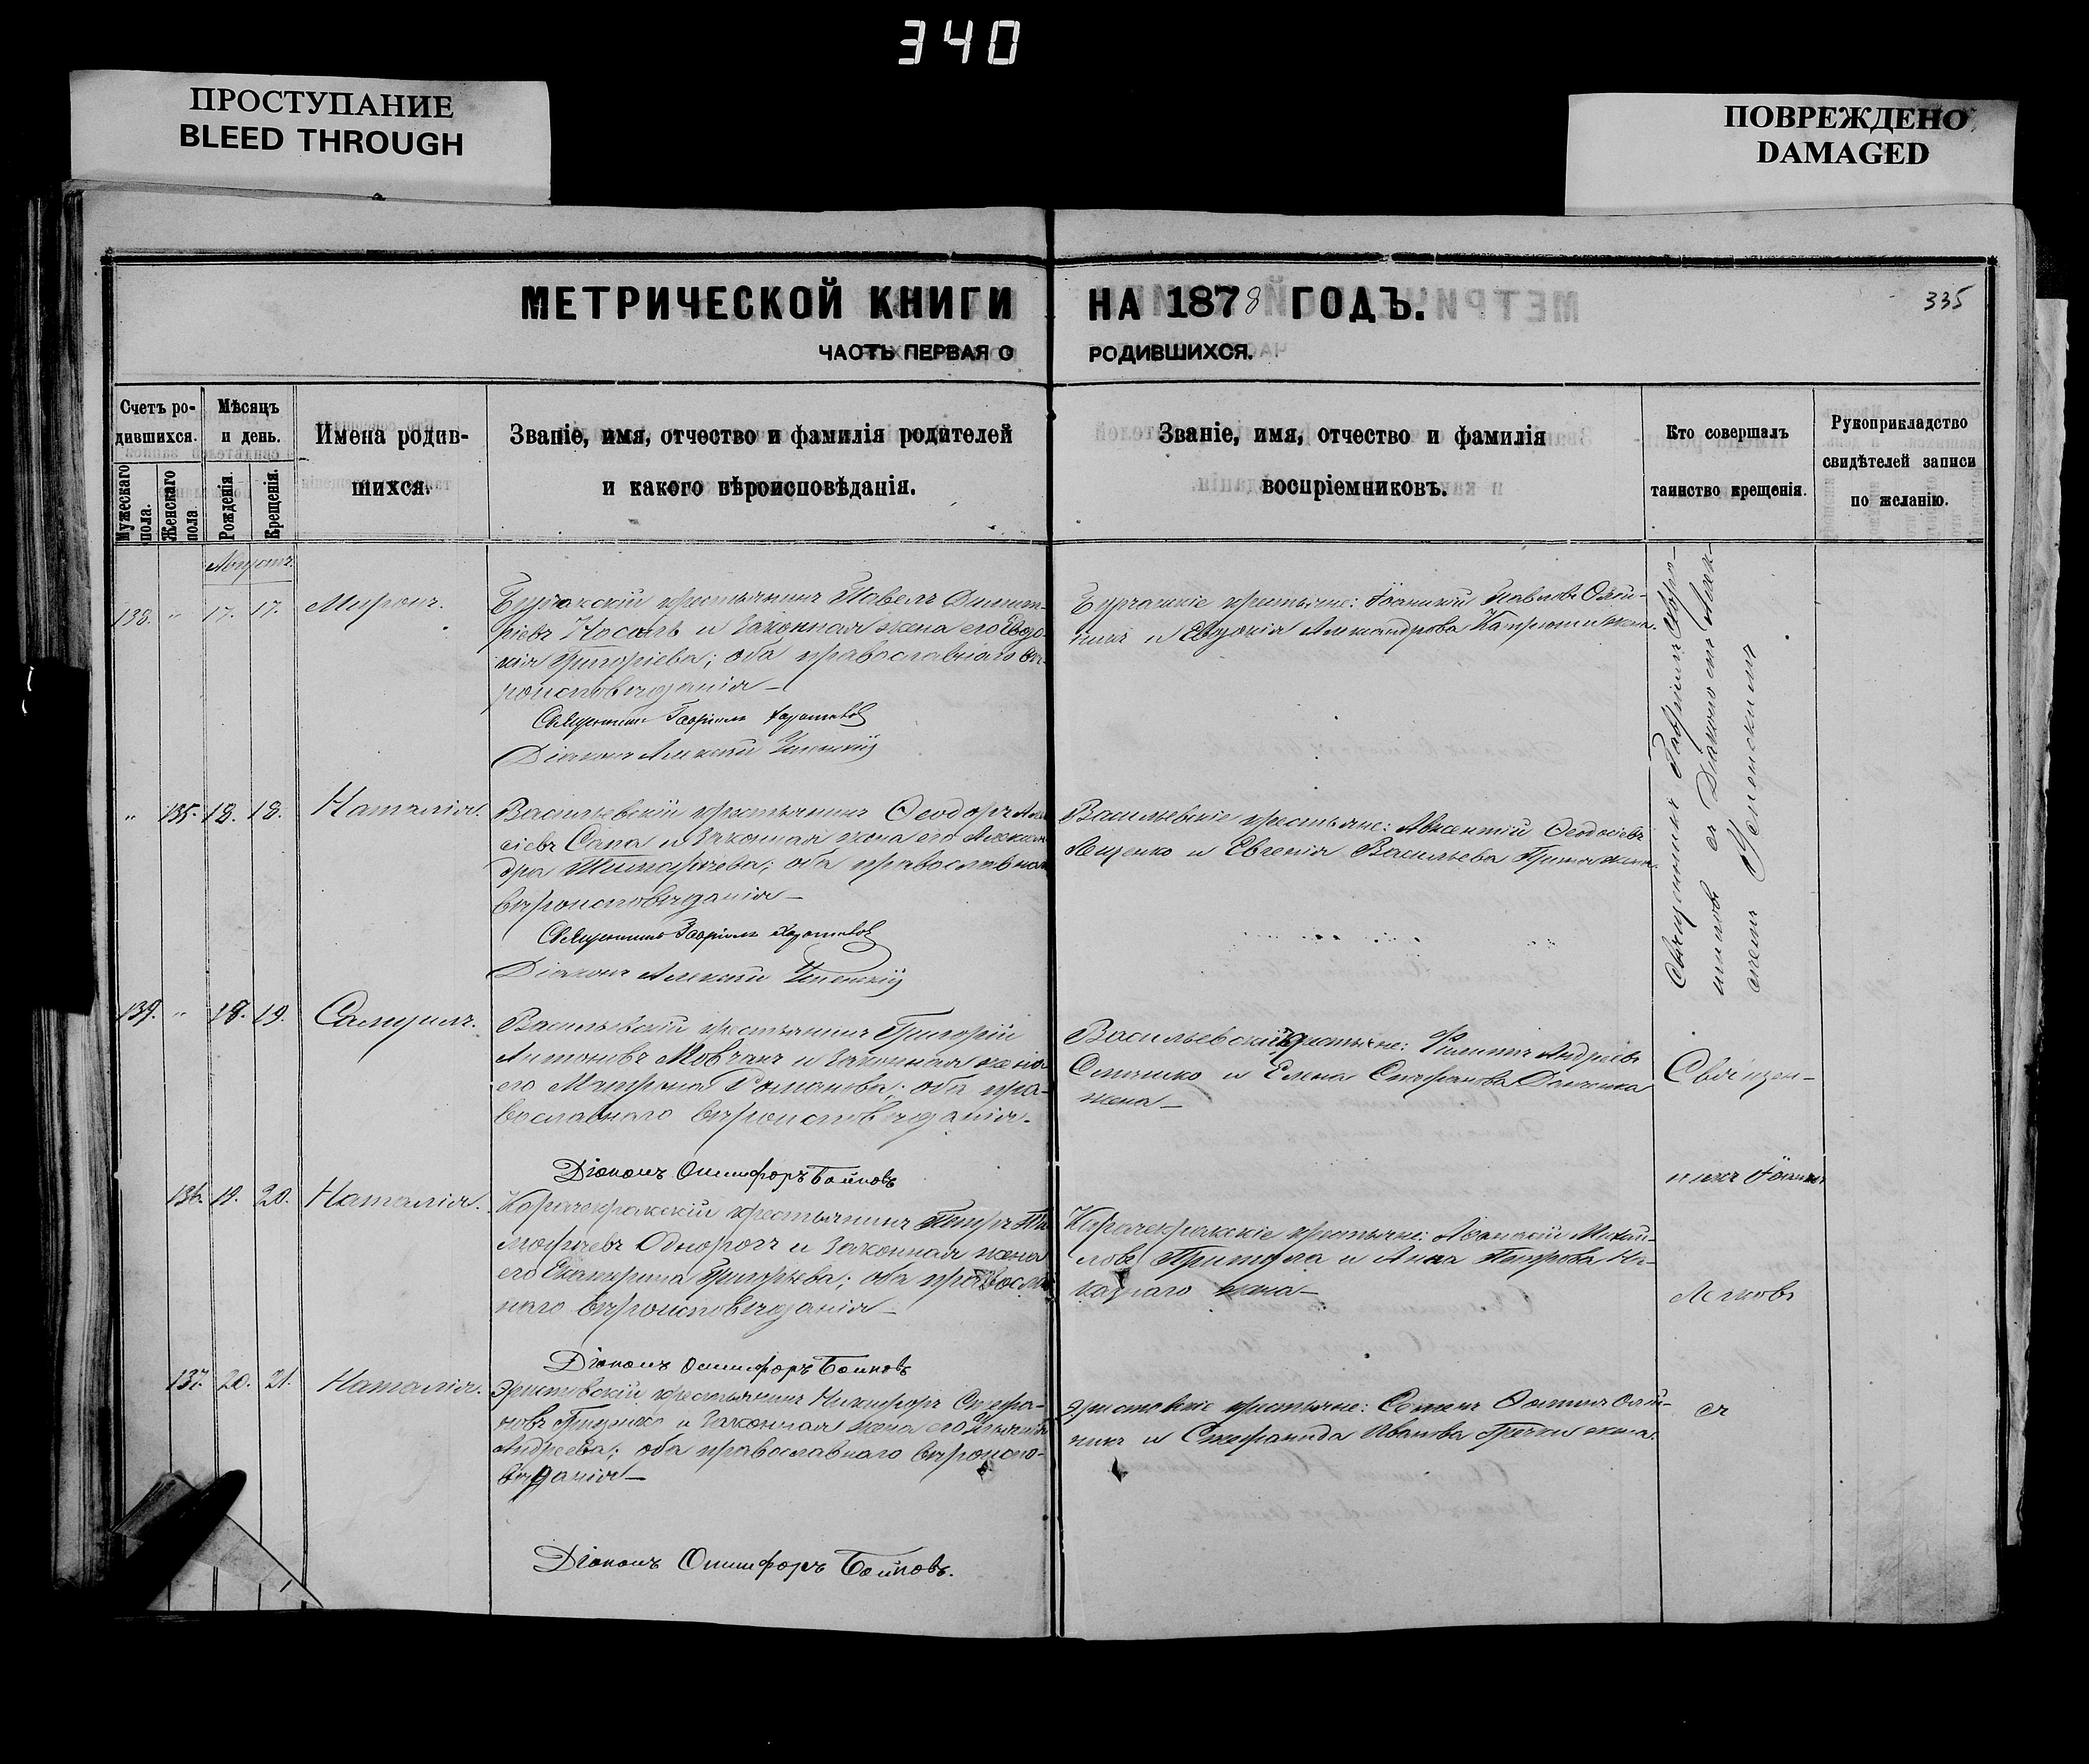 340
ПРОСТУПАНИЕ
BLEED THROUGH
ПОВРЕЖДЕНО
DAMAGED
МЕТРИЧЕСКОЙ КНИГИ НА 1878 ГОДЪ.
335
ЧАСТЬ ПЕРВАЯ О РОДИВШИХСЯ.
Счетъ ро-
дившихся.
Мужескаго пола.
Женскаго пола
Мѣсяцъ
и день.
Рожденія.
Крещенія.
Имена родив-
шихся.
Званіе, имя, отчество и фамилія родителей
и какого вѣроисповѣданія.
Званіе, имя, отчество и фамилія
воспріемниковъ.
Кто совершалъ
таинство крещенія.
Рукоприкладство
свидѣтелей записи
по желанію.
Августъ.
138. " 17. 17. Миронъ.
крестьянинъ Павелъ Димит-
ріевъ Носаль и законная жена его Евдо-
кія Григоріева; оба православнаго вѣ-
роисповѣданія
Священникъ Гавріилъ
Діаконъ Алексій Успенскій
крестьяне: Іоанникій Павловъ Олій-
никъ и Евдокія Александрова жена.
Священникъ Гавріилъ
съ Діакономъ Алек-
сѣемъ Успенскимъ
" 135. 18. 18. Наталія.
Васильевскій крестьянинъ Ѳеодоръ
сіевъ Сапа и законная жена его Алексан
дра Тимофѣева; оба православнаго
вѣроисповѣданія
Священникъ Гавріилъ
Діаконъ Алексій Успенскій
Васильевскіе крестьяне: Авксентій Ѳеодосіевъ
и Евгенія Васильева жена.
139. " 18. 19. Самуилъ.
Васильевскій крестьянинъ Григорій
Антоновъ Мовчанъ и законная жена
его Матрона Романова; оба пра-
вославнаго вѣроисповѣданія.
Діаконъ Онисифоръ Бойковъ
Васильевскіе крестьяне: Филиппъ Андреевъ
и Елена Стефанова
жена
Священ-
никъ Іоаннъ
съ
136. 19. 20. Наталія.
крестьянинъ Петръ Ти
мофѣевъ Однорогъ и законная жена
его Екатерина Григорьева; оба правосла
наго вѣроисповѣданія
Діаконъ Онисифоръ Бойковъ
крестьяне: Аѳанасій Михай-
ловъ Притула и Анна Петрова На-
жена
137. 20. 21. Наталія.
Эристовскій крестьянинъ Никифоръ Стефа-
новъ Гриценко и законная жена его
Андреева; оба православнаго вѣроиспо-
вѣданія
Діаконъ Онисифоръ Бойковъ.
Эристовскіе крестьяне: Семенъ Олій-
никъ и Стефанида Иванова Гречки жена.